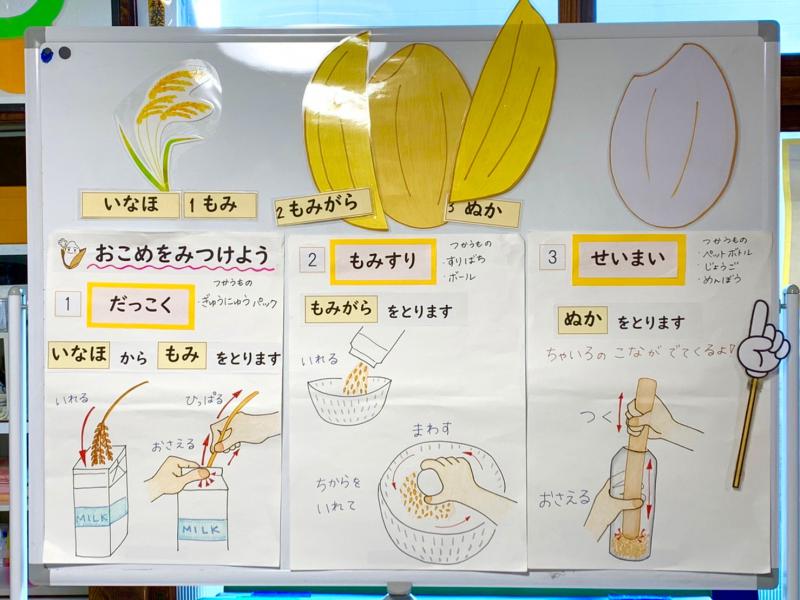 いなほ
1 もみ
2 もみがら
3 ぬか
おこめをみつけよう
1 だっこく
つかうもの
・ぎゅうにゅうパック
いなほ から もみ をとります
いれる
ひっぱる
おさえる
MILK
MILK
2 もみすり
つかうもの
・すりばち
・ボール
もみがら をとります
いれる
まわす
ちからを
いれて
3 せいまい
つかうもの
・ペットボトル
・じょうご
・めんぼう
ぬか をとります
ちゃいろの こなが でてくるよ!
つく
おさえる